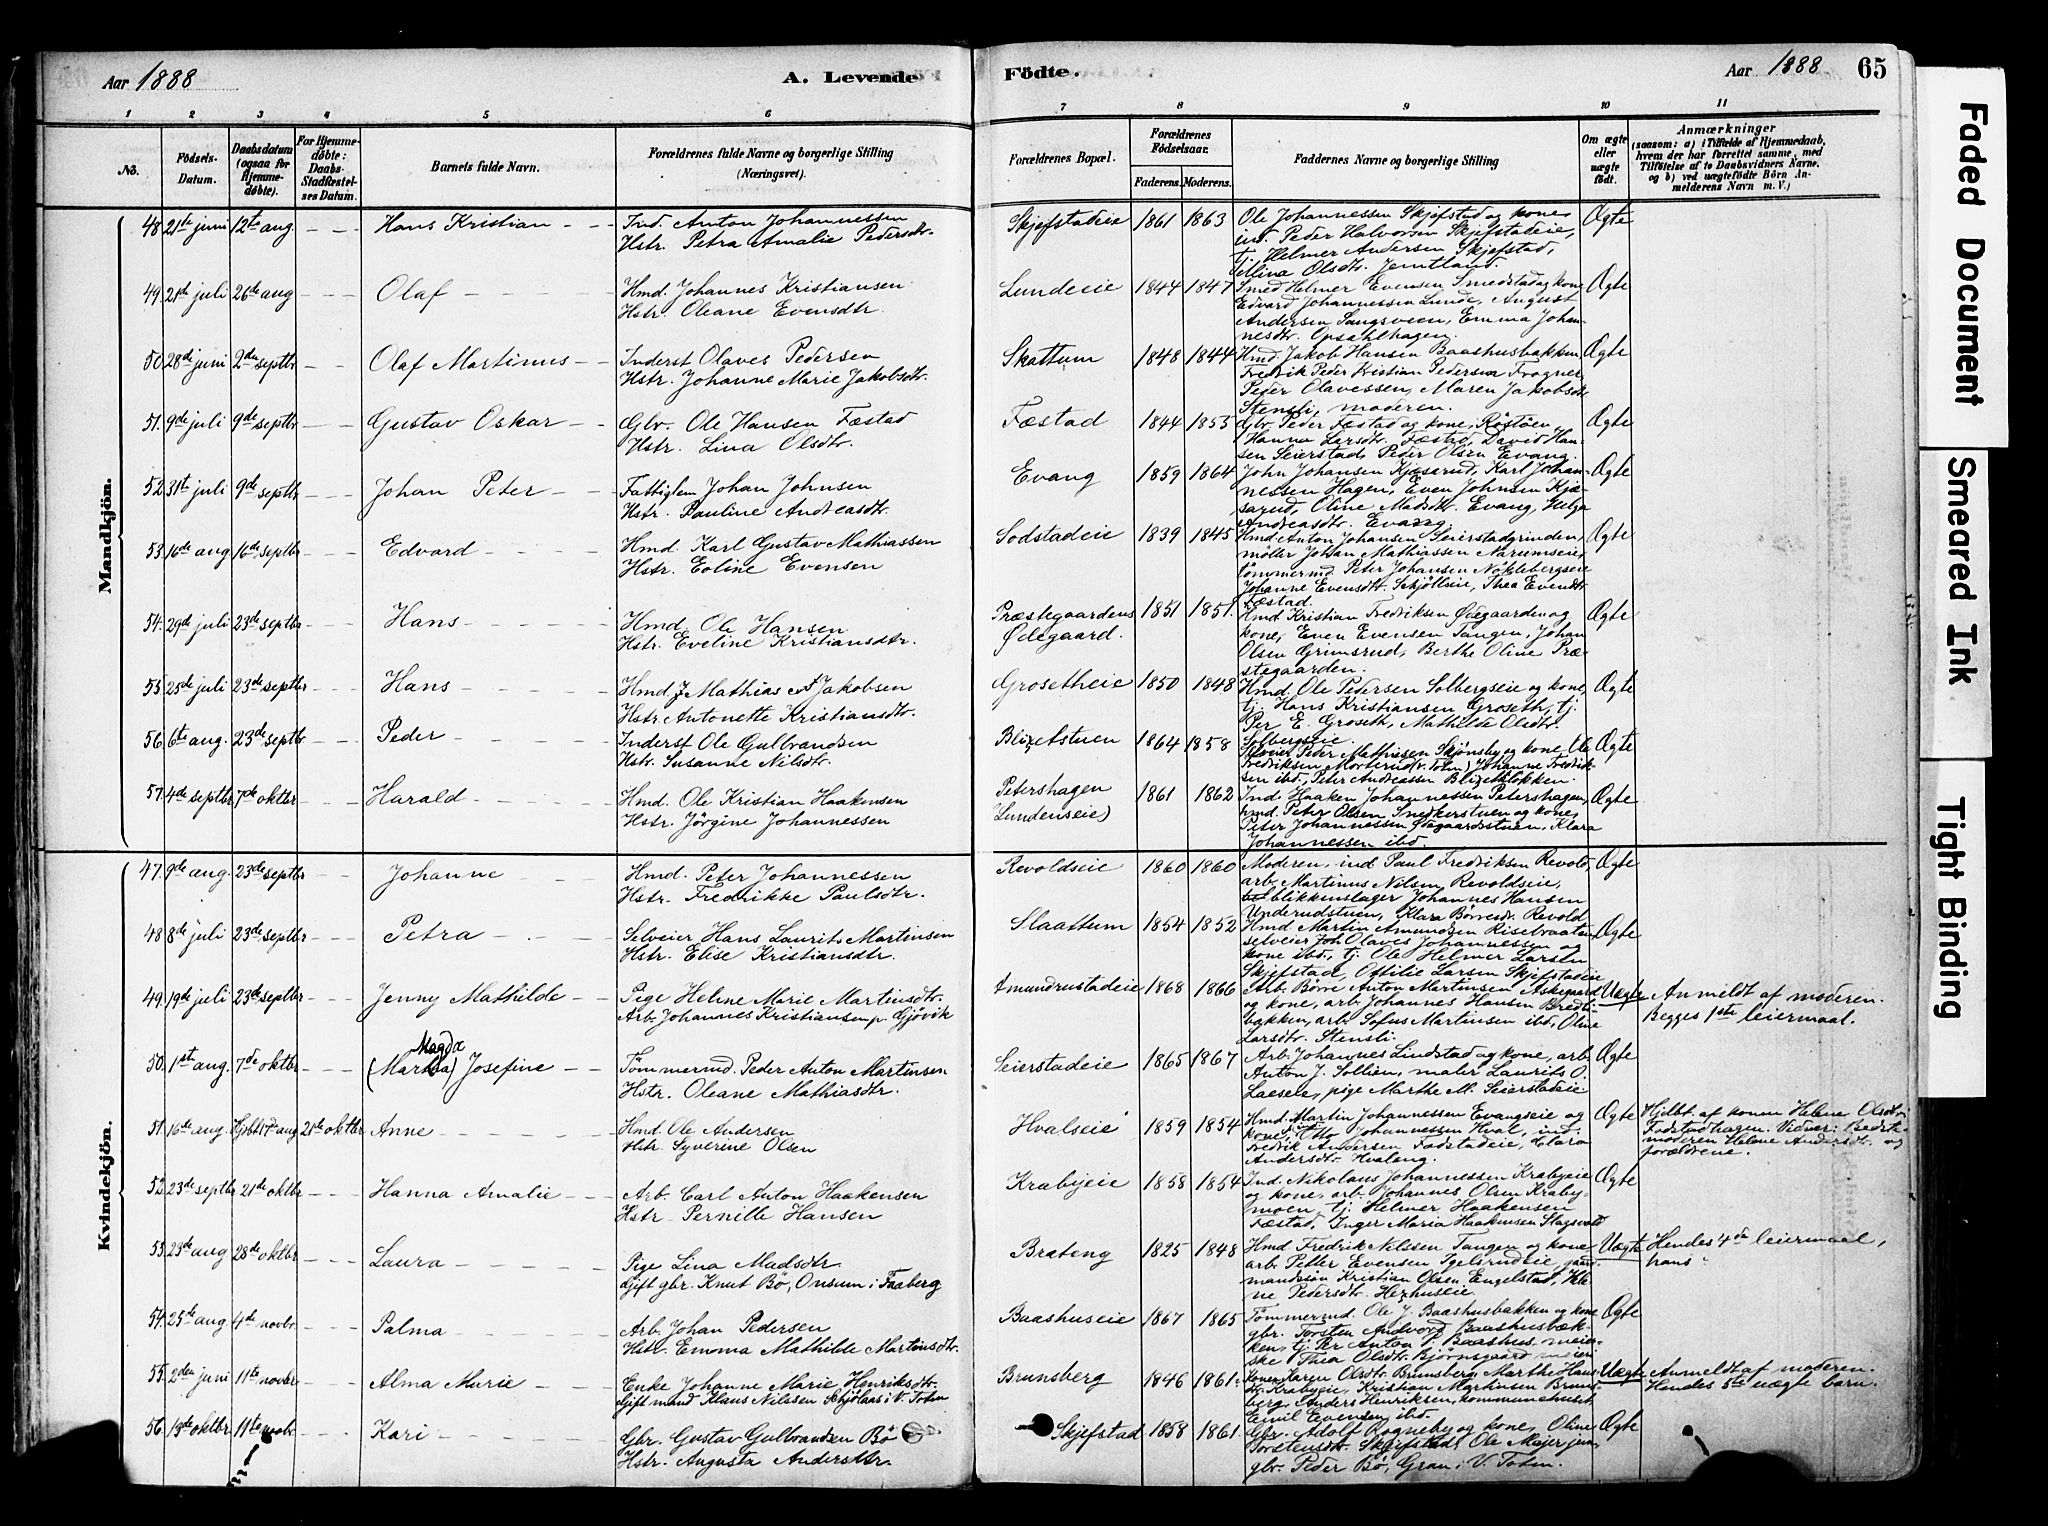 Aar 1888
A. Levende
Födte.
Aar 1888
65
1 2 3 4 5 6 7 8 9 10 11
No.
Födsels-Datum.
Daabsdatum (ogsaa for Hjemmedöbte).
For Hjemmedöbte: Daabs-Stadfæstelses Datum.
Barnets fulde Navn.
Forældrenes fulde Navne og borgerlige Stilling (Næringsvei).
Forældrenes Bopæl.
Forældrenes Födselsaar.
Faderens. Moderens.
Faddernes Navne og borgerlige Stilling
Om ægte eller uægte födt.
Anmærkninger
(saasom: a) i Tilfælde af Hjemmedaab, hvem der har forrettet samme, med Tilföielse af to Daabsvidners Navne, og b) ved uægtefödte Börn Anmelderens Navn m. V.)
Mandkjön.
48. 21de juni 12te aug. Hans Kristian Ind. Anton Johannessen
Hstr. Petra Amalie Pedersdtr.
Skjefstadeie 1861 1863 Ole Johannessen Skjefstad og kone,
ind. Peder Halvorsen Skjefstadeie,
tj. Helmer Andersen Skjefstad,
Mina Olsdtr. Jemtland.
Ægte
49. 21de juli 26de aug Olaf Hmd. Johannes Kristiansen
Hstr. Oleane Evensdtr.
Lundeeie 1844 1847 Smed Helmer Evensen Smedstad og kone
Edvard Johannessen Lunde, August
Andersen Sangsveen, Emma Johannesdtr. Opsahlhagen.
Ægte
50. 28de juni 2den septbr Olaf Martinus Inderst Olaves Pedersen
Hstr. Johanne Marie Jakobsdtr.
Skattum 1848 1844 Hmd. Jakob Hansen Baashusbakken,
Fredrik Peder Kristian Pedersen Frogner,
Peder Olavessen, Maren Jakobsdtr
Stensli, moderen.
Ægte
51. 9de juli 9de septbr Gustav Oskar Gbr. Ole Hansen Fæstad
Hstr. Lina Olsdtr.
Fæstad 1844 1855 Gbr. Peder Fæstad og kone, Röstöen,
Hanna Larsdtr. Fæstad, David Hansen Seierstad, Peder Olsen Evang.
Ægte
52. 31te juli 9de septbr Johan Peter Fattiglem Johan Johnsen
Hstr. Pauline Andreasdtr.
Evang 1859 1864 John Johansen Kjæsrud, Karl Johannessen Hagen, Even Johnsen Kjæsarud, Oline Madsdtr. Evang, Helga
Andreasdtr. Evang.
Ægte
53. 16de aug 16de septbr Edvard Hmd. Karl Gustav Mathiassen
Hstr. Eoline Evensen
Sodstadeie 1839 1845 Hmd Anton Johansen Seierstadgrinden,
möller Johan Mathiassen Narumseie,
tömmermd. Peter Johansen Nöklebergseie
Johanne Evensdtr. Skjölleie, Thea Evensdtr
Fæstad.
Ægte
54. 29de juli 23de septbr Hans Hmd. Ole Hansen
Hstr. Eveline Kristiansdtr.
Præstegaardens Ødegaard. 1851 1851. Hmd. Kristian Fredriksen Ødegaarden og
kone, Even Evensen Tangen, Johan
Olsen Grimsrud, Berthe Oline Præstegaarden.
Ægte
55. 25de juli 23de septbr Hans Hmd. Mathias Jakobsen
Hstr. Antonette Kristiansdtr.
Grosetheie 1850 1848 Hmd. Ole Pedersen Solbergseie og kone,
tj. Hans Kristiansen Groseth, tj.
Per E. Groseth, Mathilde Olsdtr.
Solbergseie.
Ægte
56. 6te aug. 23de septbr Peder Inderst Ole Gulbrandsen
Hstr. Susanne Nilsdtr.
Blixetstuen 1864 1858 Selveier Peder Mathiesen Skjønsby og kone, Ole
Fredriksen Morterud (v. Toten) Johanne Fredriksen ibd., Peter Andreassen Blixetlökken.
Ægte
57. 4de septbr 7de oktbr Harald Hmd. Ole Kristian Haakensen
Hstr. Jörgine Johannessen
Petershagen (Lundenseie) 1861 1862 Ind. Haaken Johannessen Petershagen,
hmd. Peter Olsen Snedkerstuen og kone,
Peter Johannessen Ødegaardsstuen, Klara
Johannessen ibd.
Ægte
Kvindekjön.
47. 9de aug. 23de septbr Johanne Hmd. Peter Johannessen
Hstr. Fredrikke Paulsdtr.
Revoldseie 1860 1860 Moderen, ind. Paul Fredriksen Revold,
arb. Martinus Nilsen, Revoldseie,
blikkenslager Johannes Hansen
Underudstuen, Klara Börresdtr. Revold
Ægte
48. 8de juli 23de septbr Petra Selveier Hans Laurits Martinsen
Hstr. Elise Kristiansdtr.
Slaattum 1854 1852 Hmd. Martin Amundsen Risebraaten,
selveier Joh. Olaves Johannessen og
kone ibd., tj. Ole Helmer Larsen
Skjefstad, Ottilie Larsen Skjefstadeie
Ægte
49. 19de juli 23de septbr Jenny Mathilde Pige Helene Marie Martinsdtr.
Arb. Johannes Kristiansen p. Gjövik
Amundrustadeie 1868 1866 Arb. Börre Anton Martinsen Askegaard
og kone, arb. Johannes Hansen Bredlibakken, arb. Sofus Martinsen ibd., Oline
Larsdtr. Stensli.
Uægte Anmeldt af moderen.
Begges 1ste leiermaal.
50. 1st aug. 7de oktbr (Martha) Magda Josefine Tömmermd. Peder Anton Martinsen
Hstr. Oleane Mathiasdtr.
Seierstadeie 1865 1867 Arb. Johannes Lindstad og kone, arb.
Anton J. Sollien, maler Laurits O.
Laeseie, pige Marthe M. Seierstadeie.
Ægte
51. 16de aug. Hjdbt 17de aug 21de oktbr Anne Hmd. Ole Andersen
Hstr. Syverine Olsen
Hvalseie 1859 1854 Hmd. Martin Johannessen Evangseie og
kone, Otto Johannessen Hval, ind.
Fredrik Andersen Fadstadeie, Clara
Andersdtr. Hvaleng.
Ægte Hjdbt. af konen Helene Olsdtr.
Fodstadhagen. Vidner: Bedstemoderen Helene Andersdtr. og
forældrene.
52. 23de septbr 21de oktbr Hanna Amalie Arb. Carl Anton Haakensen
Hstr. Pernille Hansen
Krabyeie 1858 1854 Ind. Nikolaus Johannessen Krabyeie
og kone, arb. Johannes Olsen Krabymoen, tj. Helmer Haakensen
Fæstad, Inger Maria Haakensen Slagsvold
Ægte
53. 23de aug 28de oktbr Laura Pige Lina Madsdtr
Gift gbr. Knut Bö, Onsum i Faaberg
Bræteng 1825 1848 Hmd. Fredrik Nilssen Tangen og kone,
arb. Petter Evensen Igelsrudeie, gaardmandssön Kristian Olsen Engelstad,
Pedersdtr.
Uægte Hendes 4de leiermaal,
hans "
54. 25de aug 4de novbr. Palma Arb. Johan Pedersen
Hstr. Emma Mathilde Martinsdtr.
Baashuseie 1867 1865 Tömmermd. Ole J. Baashusbakken og kone
gbr. Torsten Andvord Baashusbakken, tj. Per Anton Baashus, meierske Thea Olsdtr. Björnsgaard meieri
Ægte
55. 2den juni 11te novbr Alma Marie Enke Johanne Marie Henriksdtr.
Gift mand Klaus Nilssen Skjölaas i V. Toten
Brunsberg 1846 1861. Konen Karen Olsdtr. Brunsberg, Marthe Hansdtr. Krabyeie, Kristian Martinsen Brunsberg, Anders Henriksen, kommunehuset,
Emil Evensen ibd.
Uægte Anmeldt af moderen.
Hendes 5te uægte barn.
56. 13de oktbr 11te novbr Kari Gbr. Gustav Gulbrandsen Bö
Hstr. Augusta Andersdtr.
Skjefstad 1858 1861. Gbr. Adolf Rogneby og kone, Oline
Torstensdtr. Skjefstad, Ole Majer jun.
gbr. Peder Bö, Gran i V. Toten.
Ægte
Faded Document
Smeared Ink
Tight Binding